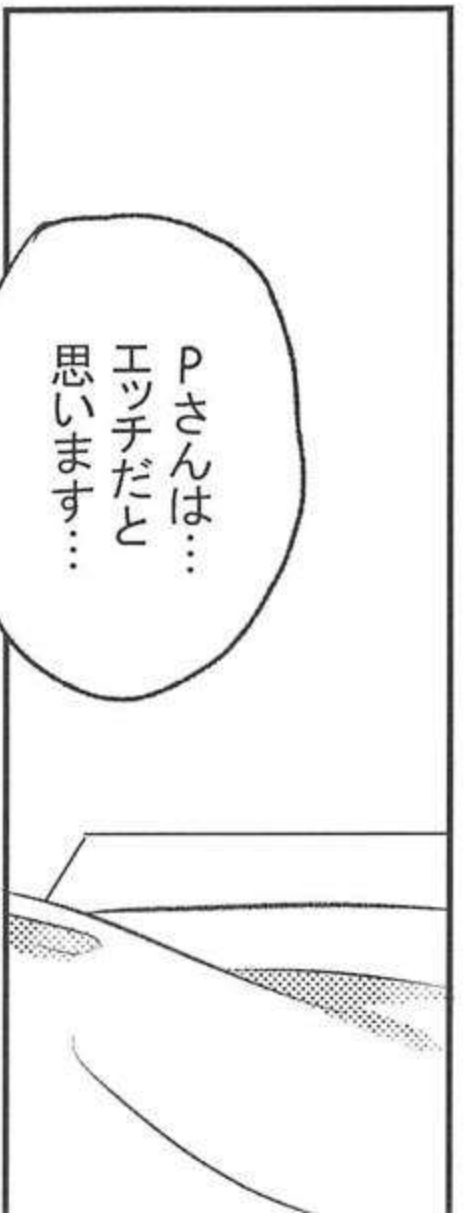 Pさんは…
エッチだと
思います…